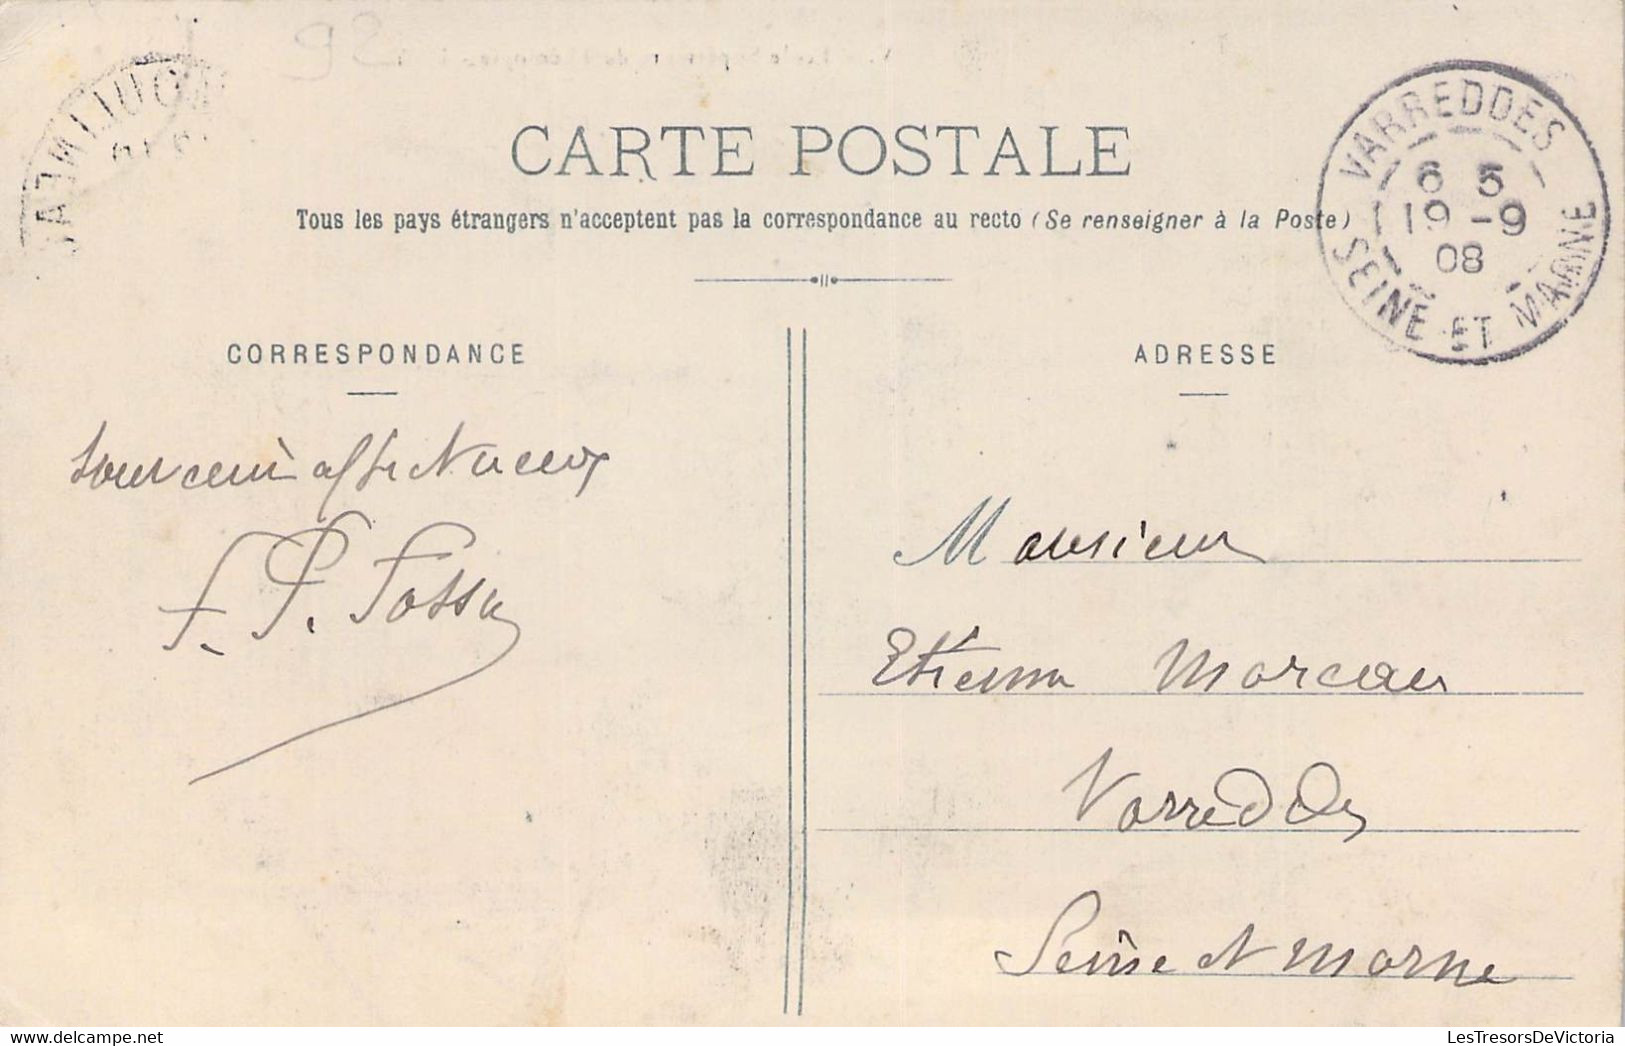 92
CARTE POSTALE
Tous les pays étrangers n'acceptent pas la correspondance au recto (Se renseigner à la Poste)
VARREDDES
6 5
19 -9
08
SEINE ET MARNE
CORRESPONDANCE
ADRESSE
Souvenir affectueux
F. P. Fossu
Monsieur
Etienne Moreau
Varreddes
Seine et Marne
LesTresorsDeVictoria